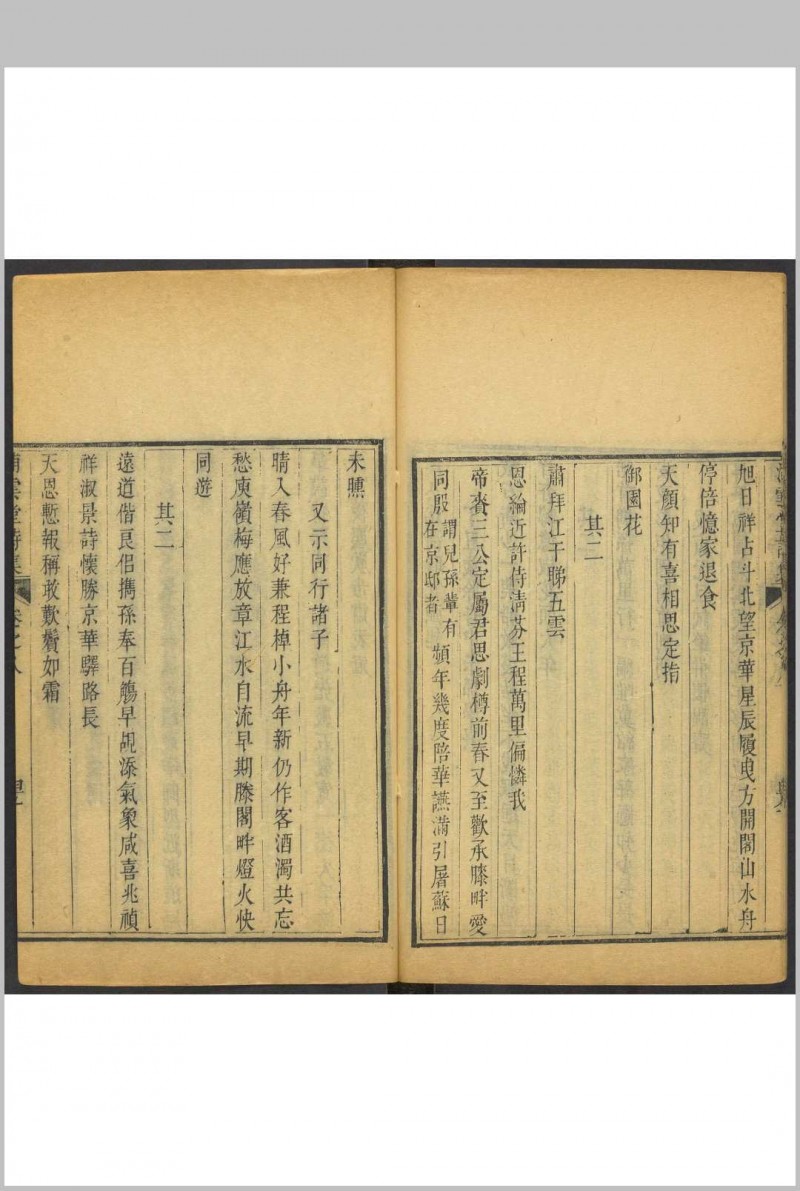 旭日祥占斗北望京華星辰履曳方開閣山水舟
停倍憶家退食
天顏知有喜相思定指
御園花
其二
肅拜江干睇五雲
恩綸近許侍清芬王程萬里偏憐我
帝賚三公定屬君思劇樽前春又至歡承膝畔愛
同殷謂兒孫輩有在京邸者頻年幾度陪華讌滿引屠蘇日
未曛
又示同行諸子
晴入春風好兼程棹小舟年新仍作客酒濁共忘
愁庾嶺梅應放章江水自流早期滕閣畔燈火快
同遊
其二
遠道偕良侶携孫奉百觴早覘添氣象咸喜兆禎
祥淑景詩懷勝京華驛路長
天恩慙報稱敢歎鬢如霜
堂詩集
卷之八